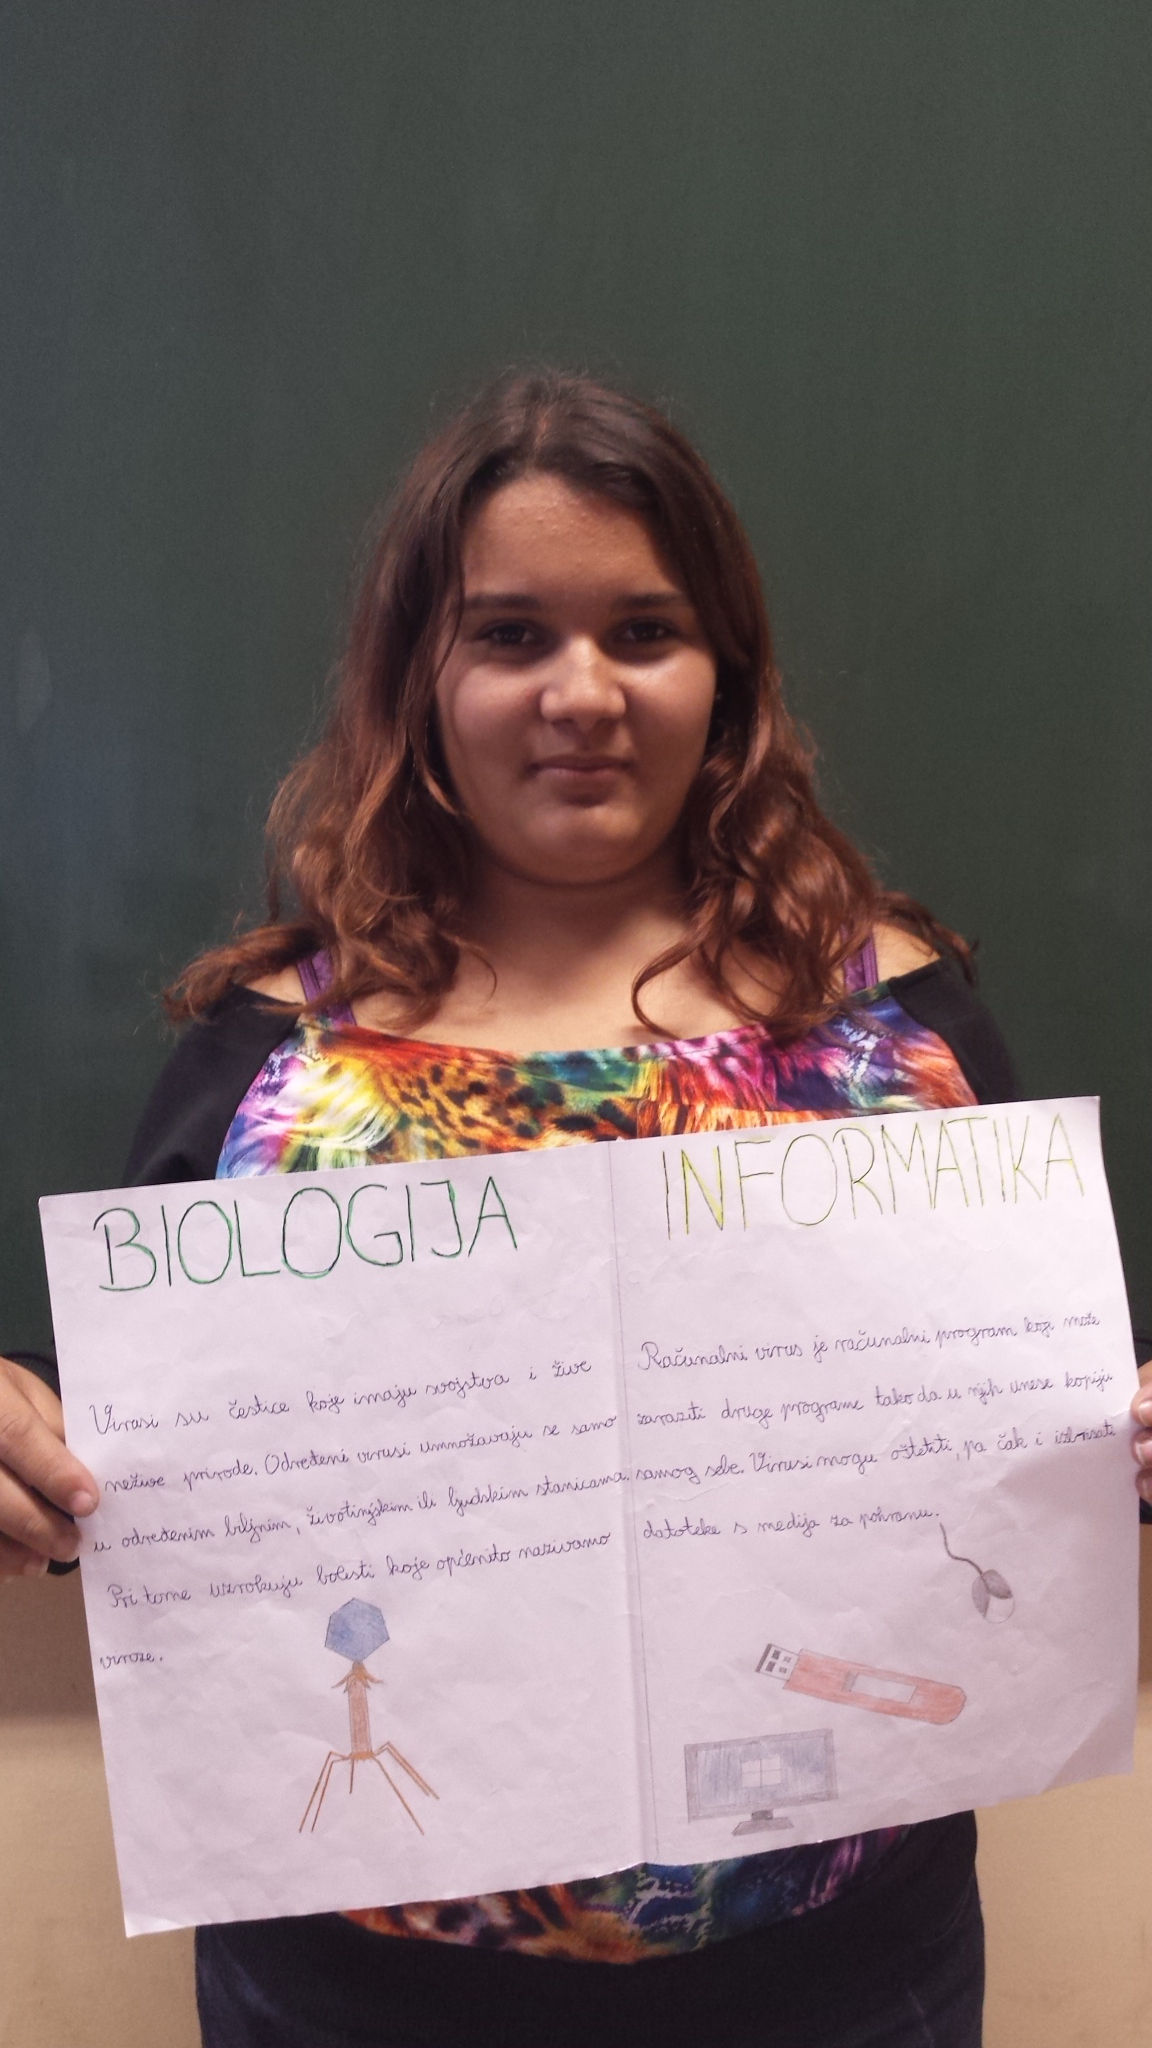 BIOLOGIJA
Virusi su čestice koje imaju svojstva i žive
nežive prirode. Određeni virusi umnožavaju se samo
u određenim biljnim, životinjskim ili ljudskim stanicama.
Pri tome uzrokuju bolesti koje općenito nazivamo
viroze.
INFORMATIKA
Računalni virus je računalni program koji može
zaraziti druge programe tako da u njih unese kopiju
samog sebe. Virusi mogu oštetiti, pa čak i izbrisati
datoteke s medija za pohranu.